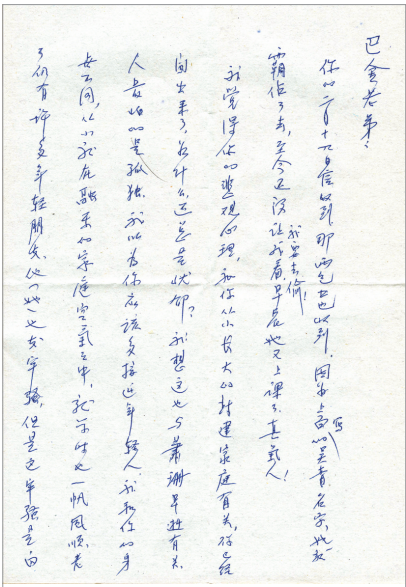 巴金老弟：
你的二月十九日信收到，那两包书也收到，因为上面写的吴青名字，她就
霸佔了去，至今还没让我看，我要去偷！早晨她又上课了，真气人！
我觉得你的悲观心理，和你从小长大的封建家庭有关，你已经
闯出来了，为什么还总是忧郁？我想这也与萧珊早逝有关。
人最怕的是孤独，我以为你应该多接近年轻人，我和你的身
世不同，从小就在融乐的家庭空气之中，也一帆风顺，老
了仍有许多年轻朋友，他（她）也发牢骚，但是这牢骚是向